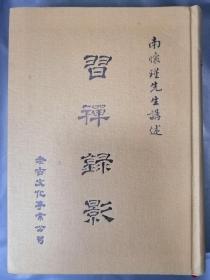 南懷瑾先生講述
習禪錄影
老古文化事業公司